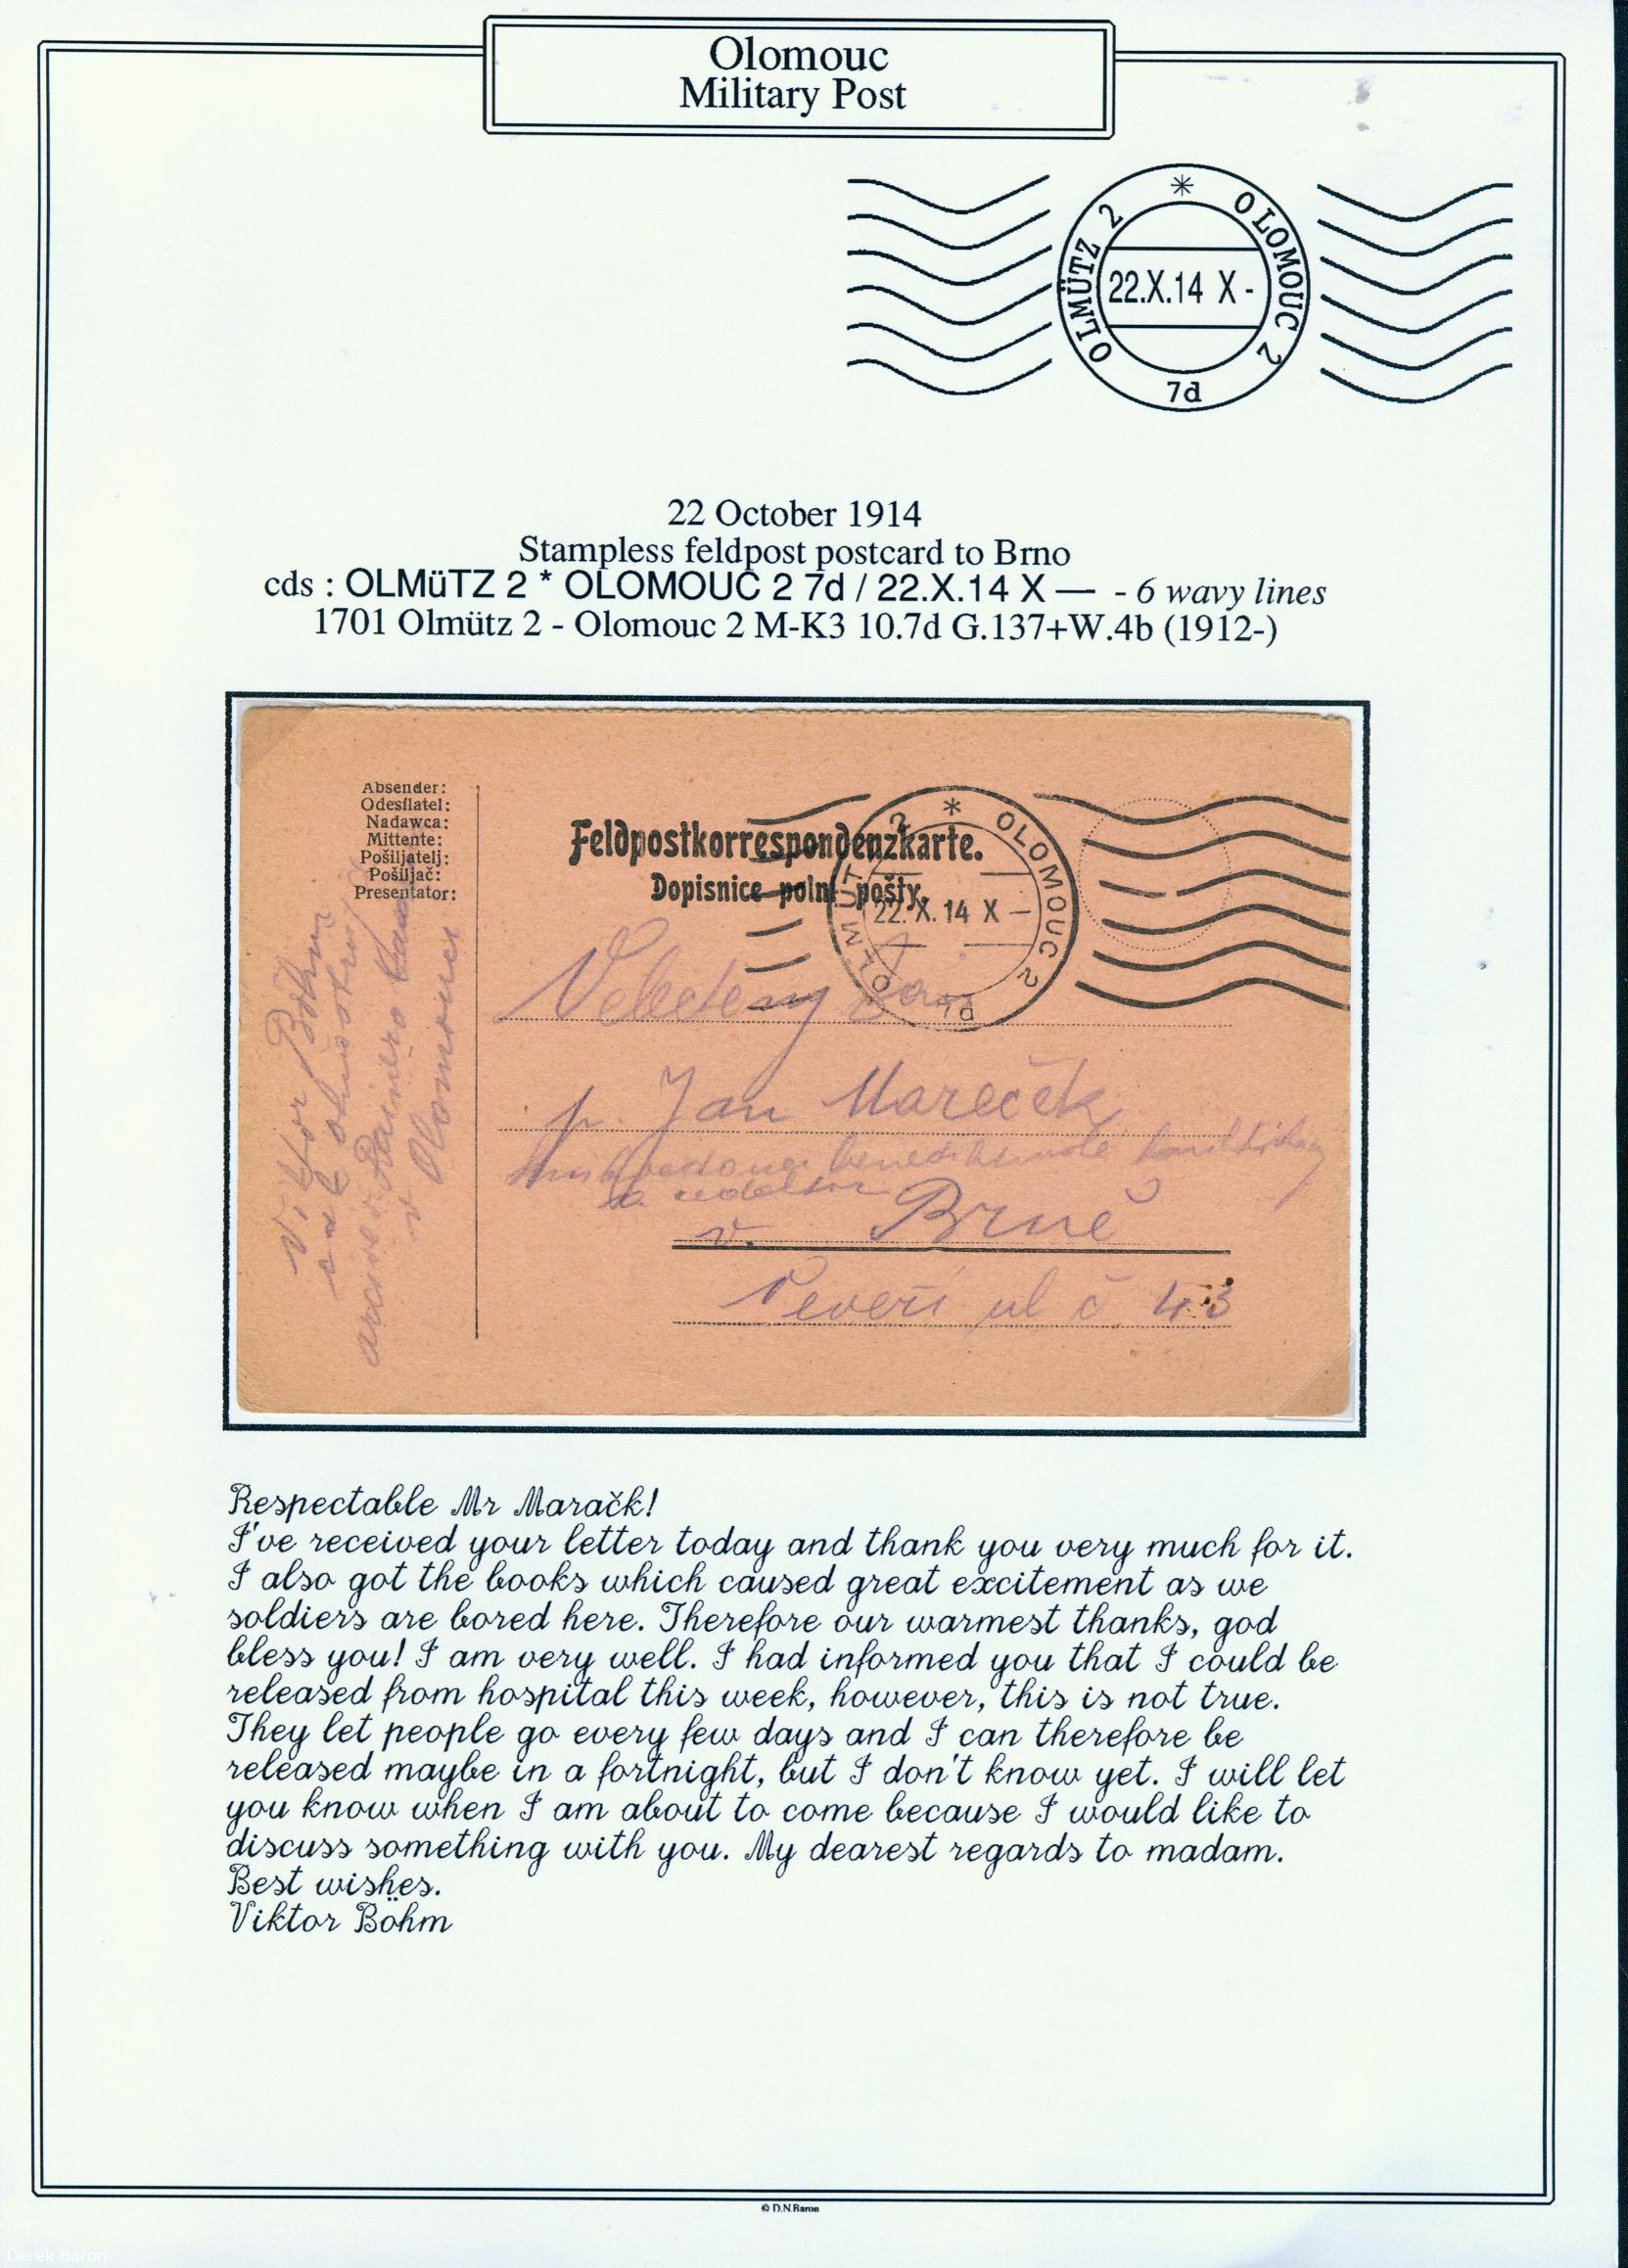 Olomouc
Military Post
OLMÜTZ 2 * OLOMOUC 2
22.X.14 X -
7d
22 October 1914
Stampless feldpost postcard to Brno
cds : OLMüTZ 2 * OLOMOUC 2 7d / 22.X.14 X — - 6 wavy lines
1701 Olmütz 2 - Olomouc 2 M-K3 10.7d G.137+W.4b (1912-)
Absender:
Odesílatel:
Nadawca:
Mittente:
Pošiljatelj:
Pošiljač:
Presentator:
Viktor Böhm
v Olomouci
Feldpostkorrespondenzkarte.
Dopisnice polní pošty.
OLMÜTZ 2 * OLOMOUC 2
22.X.14 X —
7d
p. Jan Mareček
v. Brně
ul č. 43
Respectable Mr Maračk!
I've received your letter today and thank you very much for it.
I also got the books which caused great excitement as we
soldiers are bored here. Therefore our warmest thanks, god
bless you! I am very well. I had informed you that I could be
released from hospital this week, however, this is not true.
They let people go every few days and I can therefore be
released maybe in a fortnight, but I don't know yet. I will let
you know when I am about to come because I would like to
discuss something with you. My dearest regards to madam.
Best wishes.
Viktor Böhm
© D.N.Baron
Derek Baron